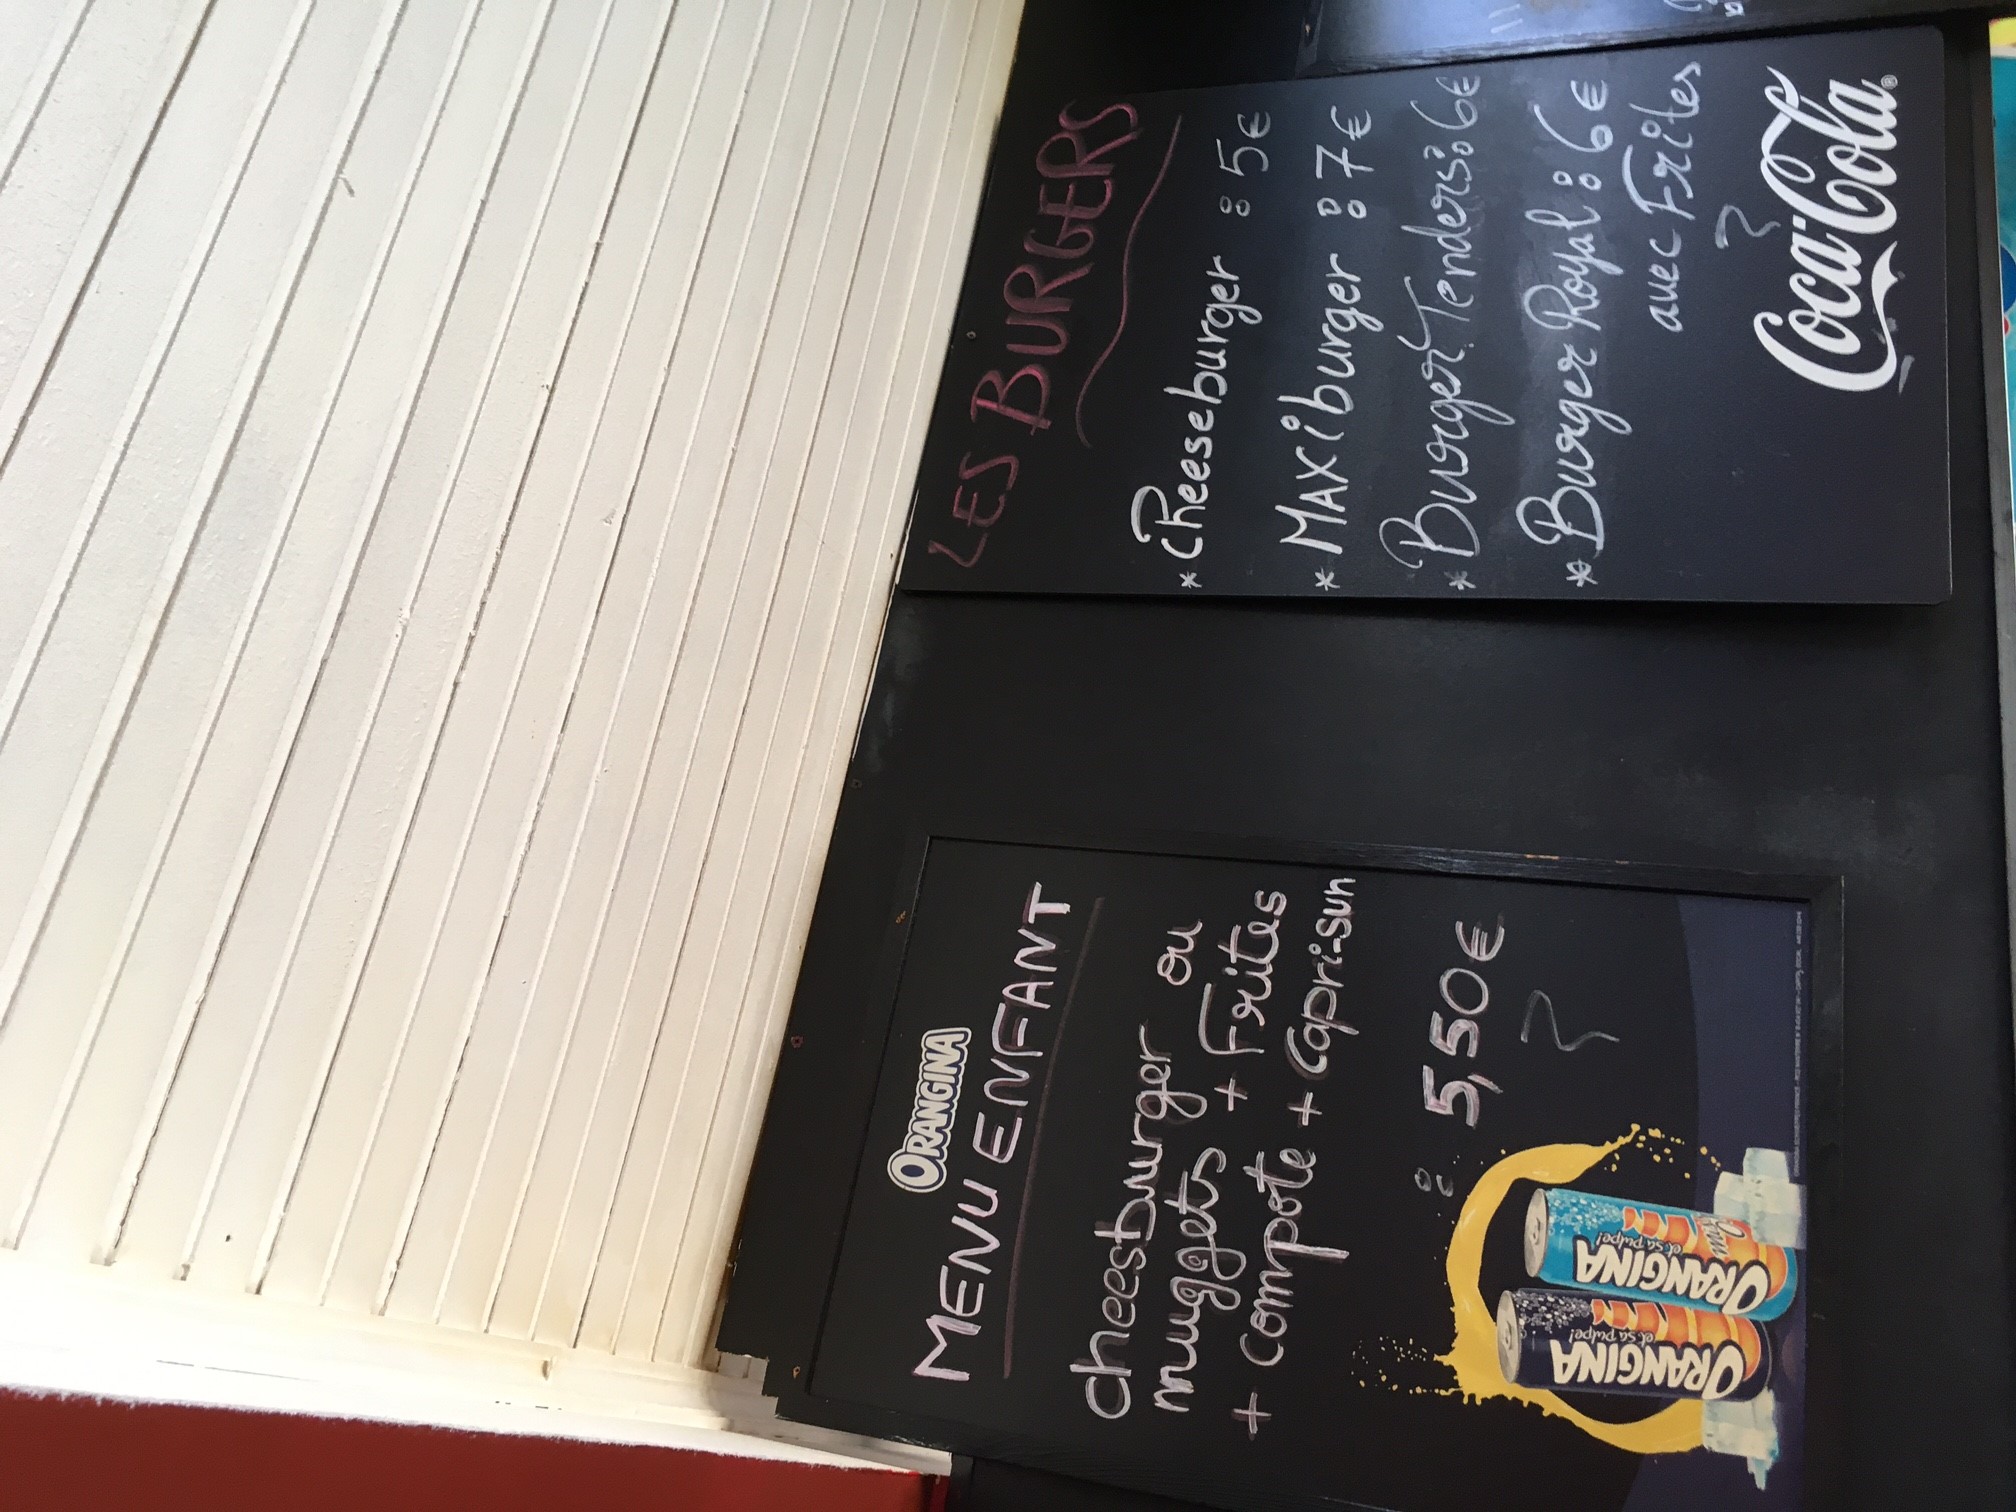 ORANGINA
MENU ENFANT
cheesburger ou
nuggets + Frites
+ compote + Capri-sun
: 5,50€
ORANGINA
et sa pulpe!
ORANGINA
et sa pulpe!
LES BURGERS
* Cheeseburger : 5€
* MAXiburger : 7€
* Burger Tenders: 6€
* Burger Royal : 6€
avec Frites
Coca-Cola®